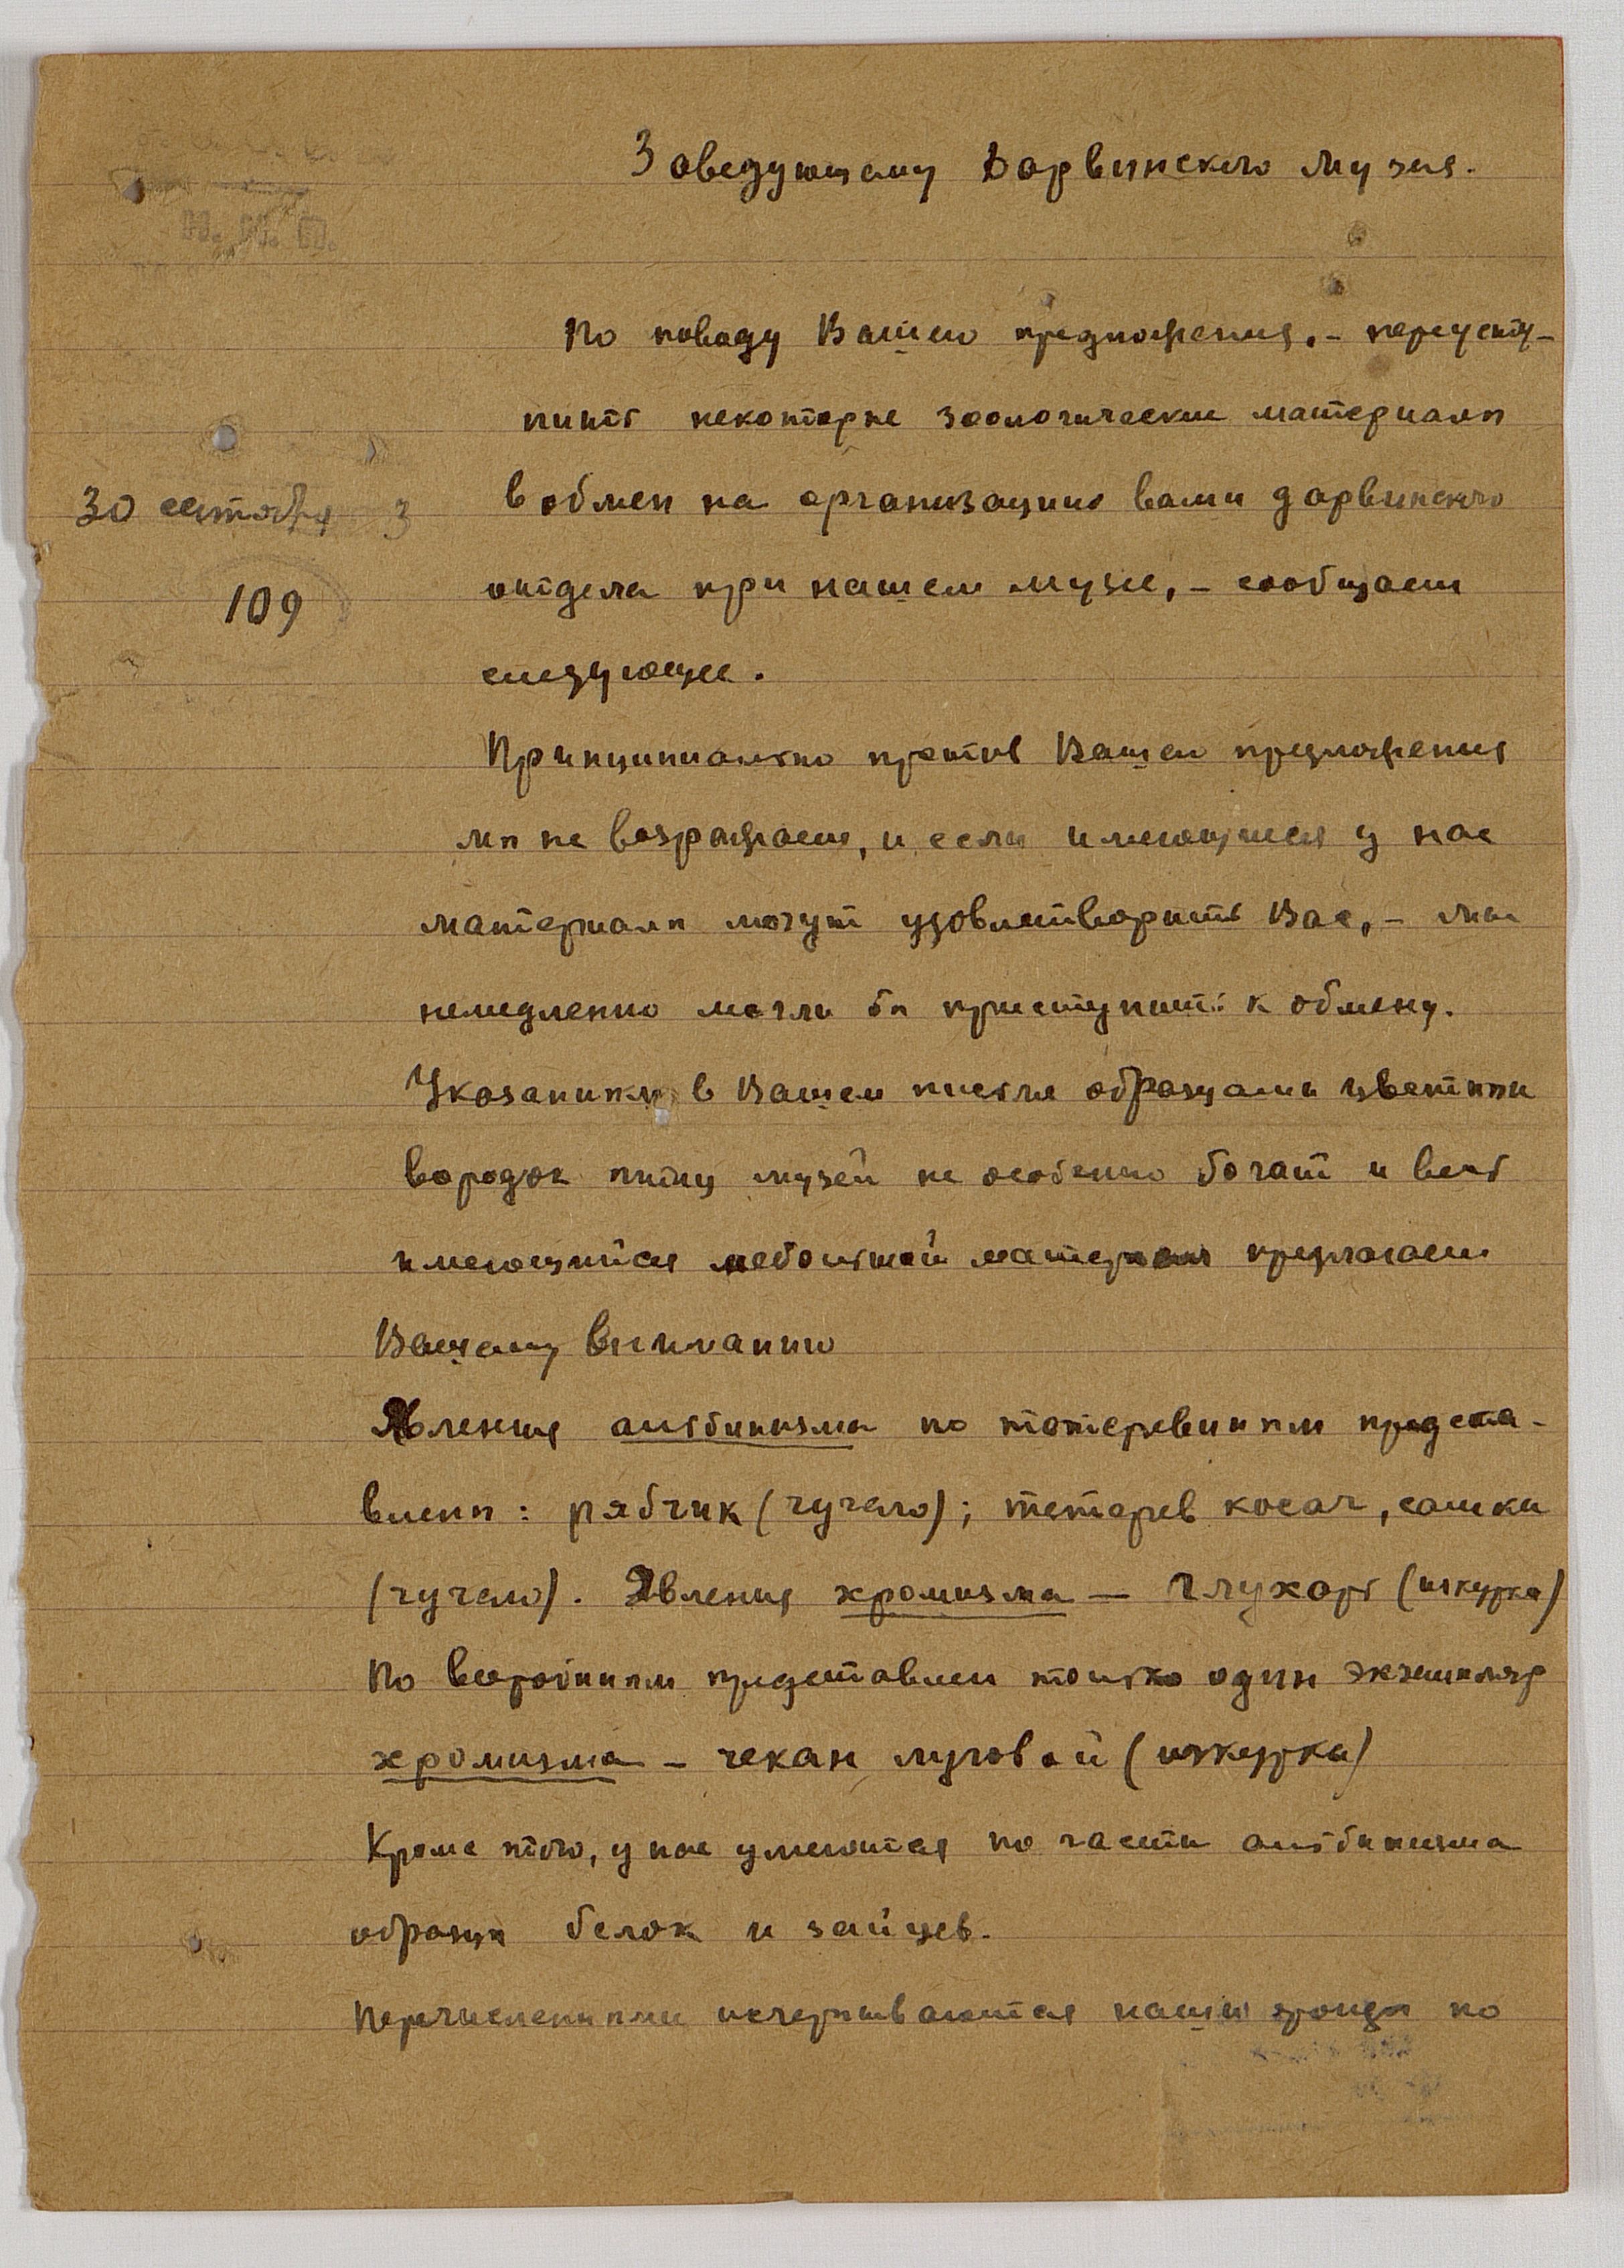 Заведующему Дарвинского Музея.
По поводу Вашего предложения, - переусту-
пить некоторые зоологические материалы
в обмен на организацию вами дарвинского
30 сентября 3
109
отдела при нашем музее, - сообщаем
следующее.
Принципиально против Вашего предложения
мы не возражаем, и если имеющиеся у нас
материалы могут удовлетворить Вас, - мы
немедленно могли бы приступить к обмену.
Указанными в Вашем письме образцами цветных
вородок птиц музей не особенно богат и весь
имеющийся небольшой материал предлагаем
Вашему вниманию
Явления альбинизма по тетеревиным предста-
влены: рябчик (чучело); тетерев косач, самка
(чучело). Явления хромизма — глухарь (шкурка)
По воробьиным представлен только один экземпляр
хромизма - чекан луговой (шкурка)
Кроме того, у нас умеются по части альбинизма
образцы белок и зайцев.
Перечисленными исчерпываются наши фонды по
Н. К. П.